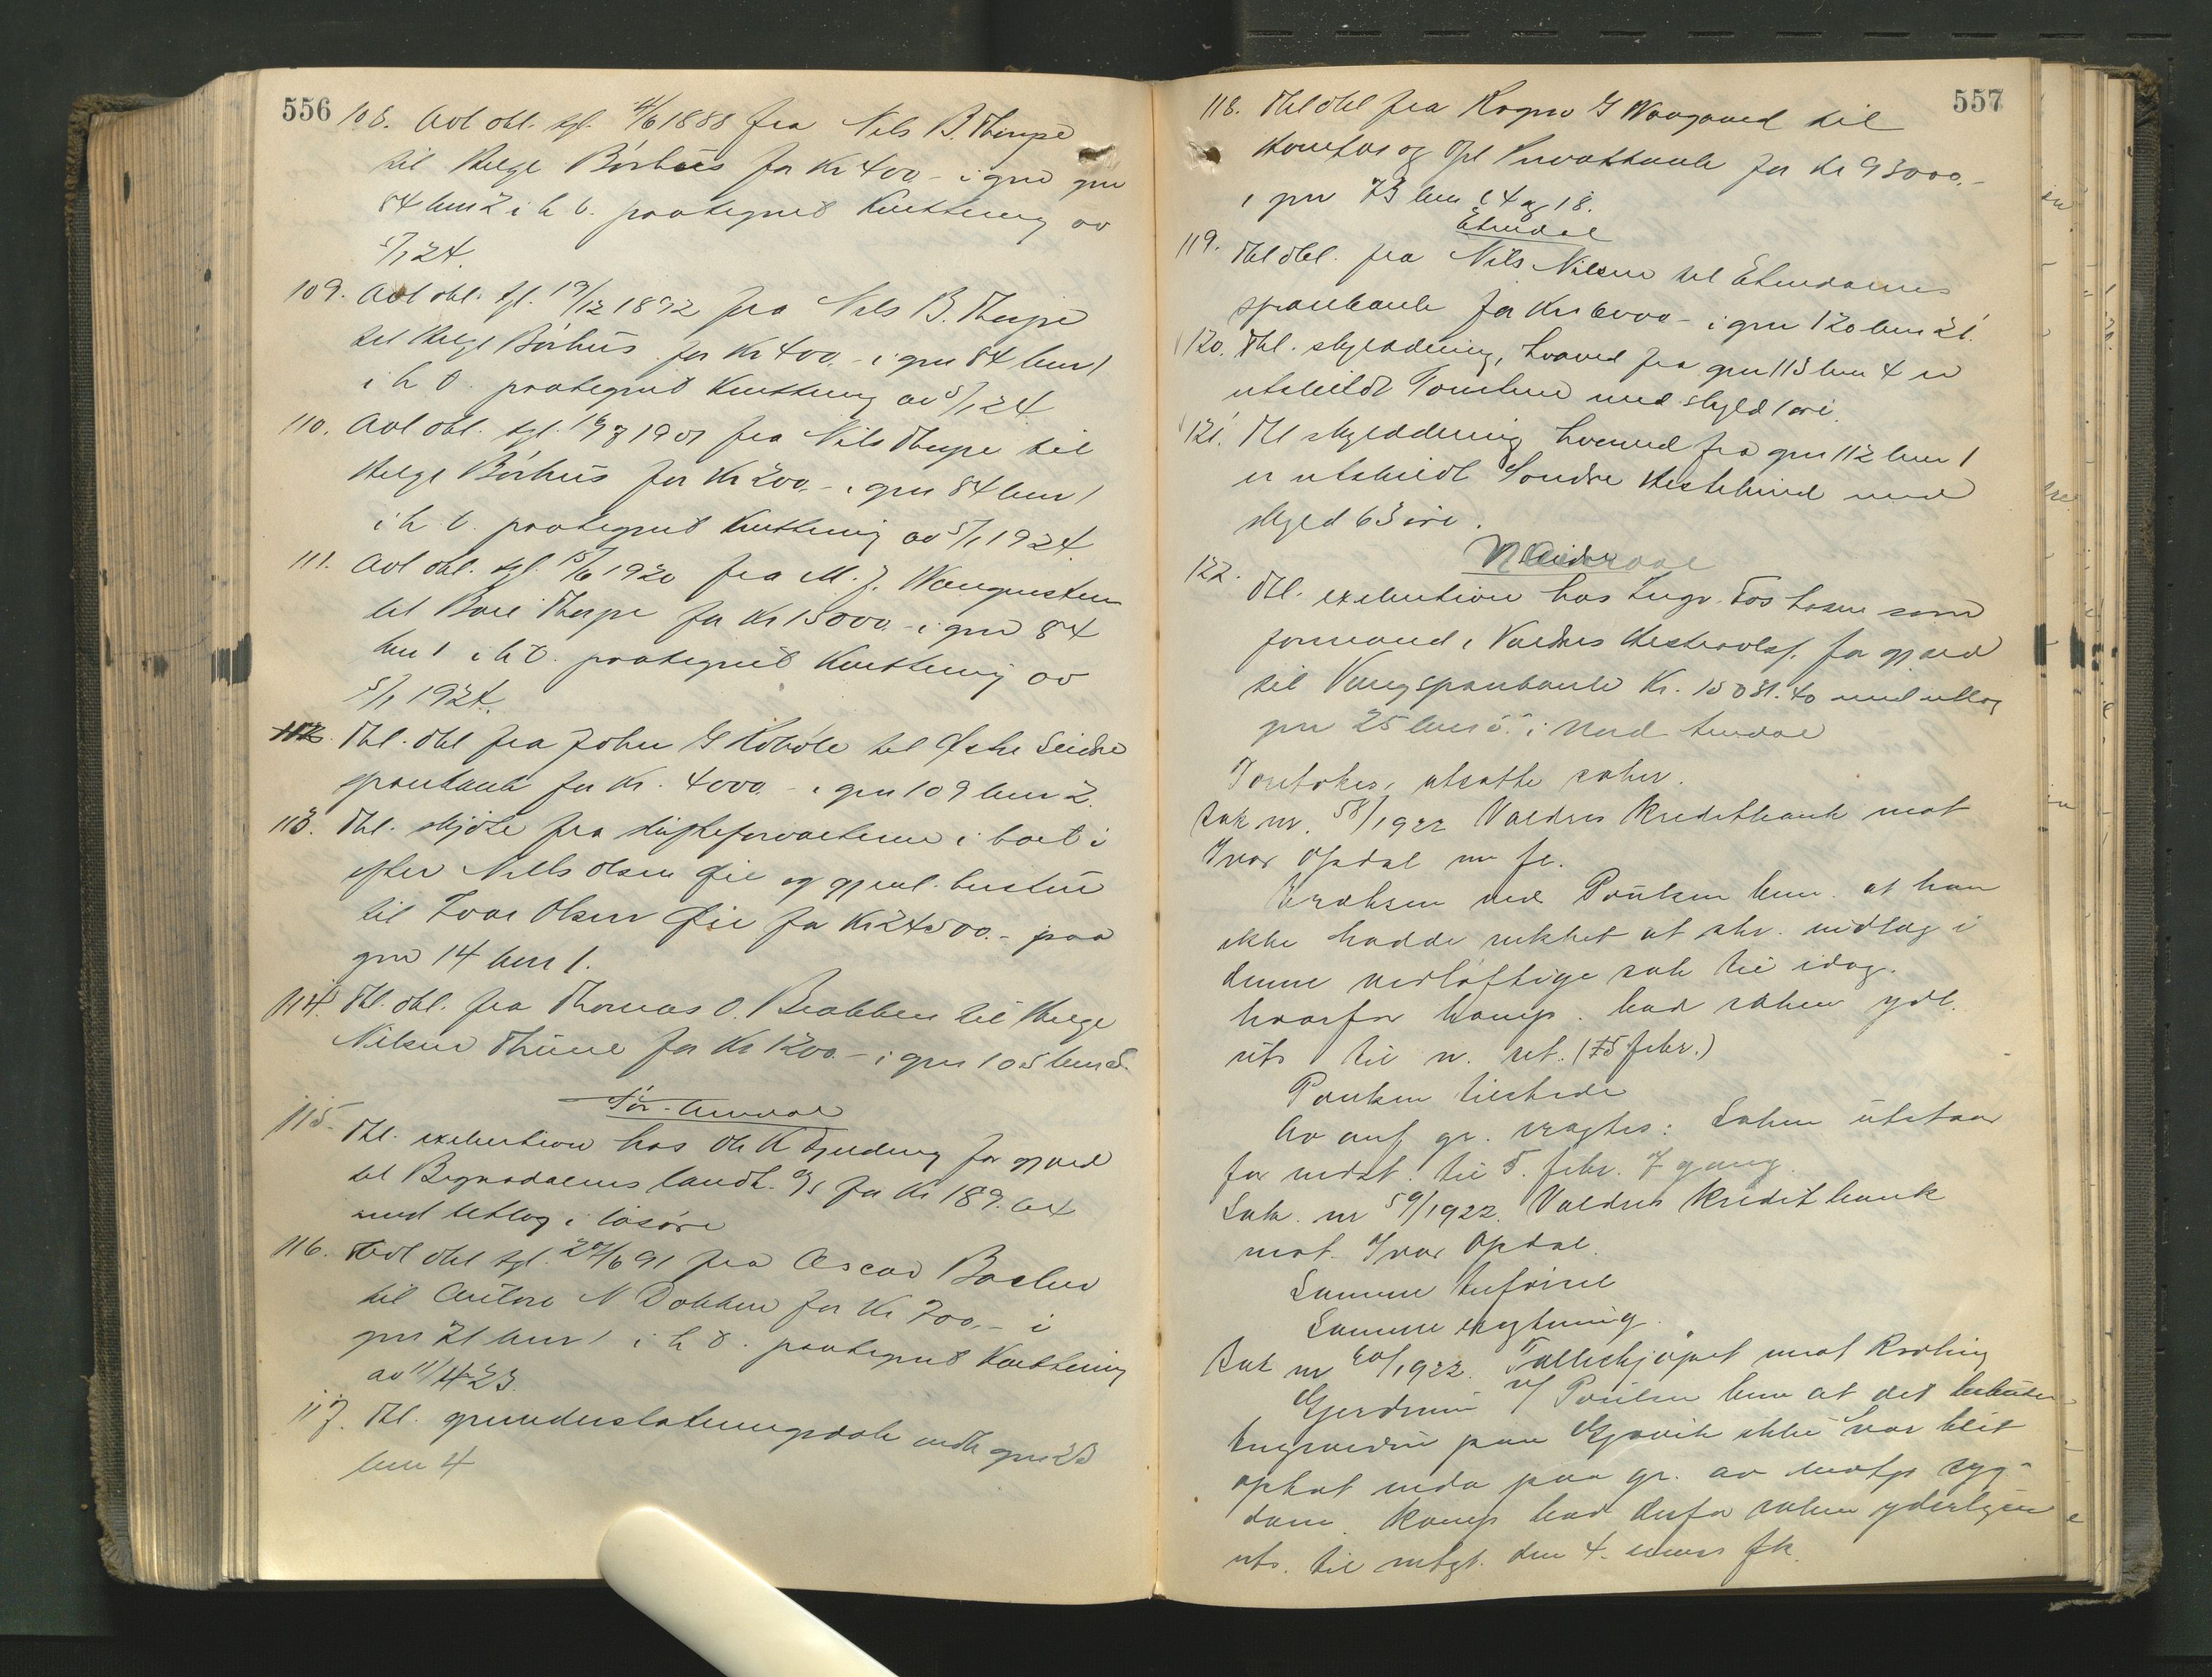 556
108. Avl obl. tgl. 4/6 1888 fra Nils B. Thorpe
til Helge Börhus for Kr 400 - i gnr
84 bnr 2 i h t. paategnet Kvittering av
5/1 24.
109. Avl obl. tgl. 19/12 1892 fra Nils B. Thorpe
til Helge Börhus for Kr 400.- i gnr 84 bnr 1
i h t. paategnet Kvittering av 5/1 24
110. Avl obl. tgl. fra Nils Thorpe til
Helge Börhus for Kr 200.- i gnr 84 bnr 1
i h t. paategnet Kvittering av 5/1 1924.
111. Avl obl. tgl. 15/6 1920 fra M. J. Wangensteen
til Thorpe for Kr 15000 - i gnr 84
bnr 1 i h t. paategnet Kvittering av
5/1 1924.
112. Thl. obl fra John G til Østre Slidre
sparebank for Kr. 4000.- i gnr 109 bnr 2.
113. Thl. skjöte fra skifteforvalteren i boet i
efter Nills Olsen Øie og gjenl. hustru
til Ivar Olsen Øie for Kr 24500.- paa
gnr 14 bnr 1.
114. Thl. obl. fra Thomas O. Brabben til Helge
Nilsen Thune for Kr 1200.- i gnr 105 bnr
Sör-Aurdal
115. Thl. exekution hos Ole K for gjæld
til Begnadalens landh. for Kr 189.64
med utlæg i lösöre
116. Avl obl tgl. fra Oscar
til N Dokken for Kr 700.- i
gnr 21 bnr 1 i h t. paategnet Kvittering
av 11/4 23.
117. Thl. grundeslatningssak vedk gnr 23
bnr 4
557
118. Thl obl fra G Wangaard til
Homtas og Opl Privatbank for Kr 93000.-
i gnr 73 bnr 14 og 18.
Etnedal
119. Thl obl. fra Nils Nilsen til Etnedalens
sparebank for Kr 6000 - i gnr 120 bnr 21.
120. Thl. skylddeling, hvorved fra gnr 113 bnr 4 er
utskildt med skyld 1 öre.
121. Thl skylddeling hvorved fra gnr 112 bnr 1
er utskildt Söndre med
skyld 63 öre.
N Aurdal
122. Thl. exekution hos Ingv. Fosholm som
formand i Valdres Hesteavlsf. for gjæld
til Vang sparebank Kr. 15031.40 med utlæg
gnr 25 bnr 5 i Nord Aurdal
Foretokes, utsatte saker.
Sak nr. 58/1922 Valdres Kreditbank mot
Ivar Opdal m fl.
Eraksen ved Poulsen bem. at han
ikke hadde rukket at skr. indlæg i
denne vidlöftige sak til idag.
hvorfor komp. bad saken ydl.
uts til n. ret. (5 febr.)
Poulsen tilstede
Av anf gr. eragtes: Saken utstaar
for vedst. til 5. febr. 7 gang.
Sak. nr 59/1922. Valdres Kreditbank
mot Ivar Opdal.
Samme tilförsel
Samme eragtning.
Sak nr 60/1922. Fælleskjöpet mot Roöling
Gjerdrum v/ Poulsen bem at det beslutn.
tingsvidne paa Gjövik ikke var blit
optat enda paa gr. av motp. syg-
dom. Komp bad derfor saken yderligere
uts. til retsg. den 4. mars fk.